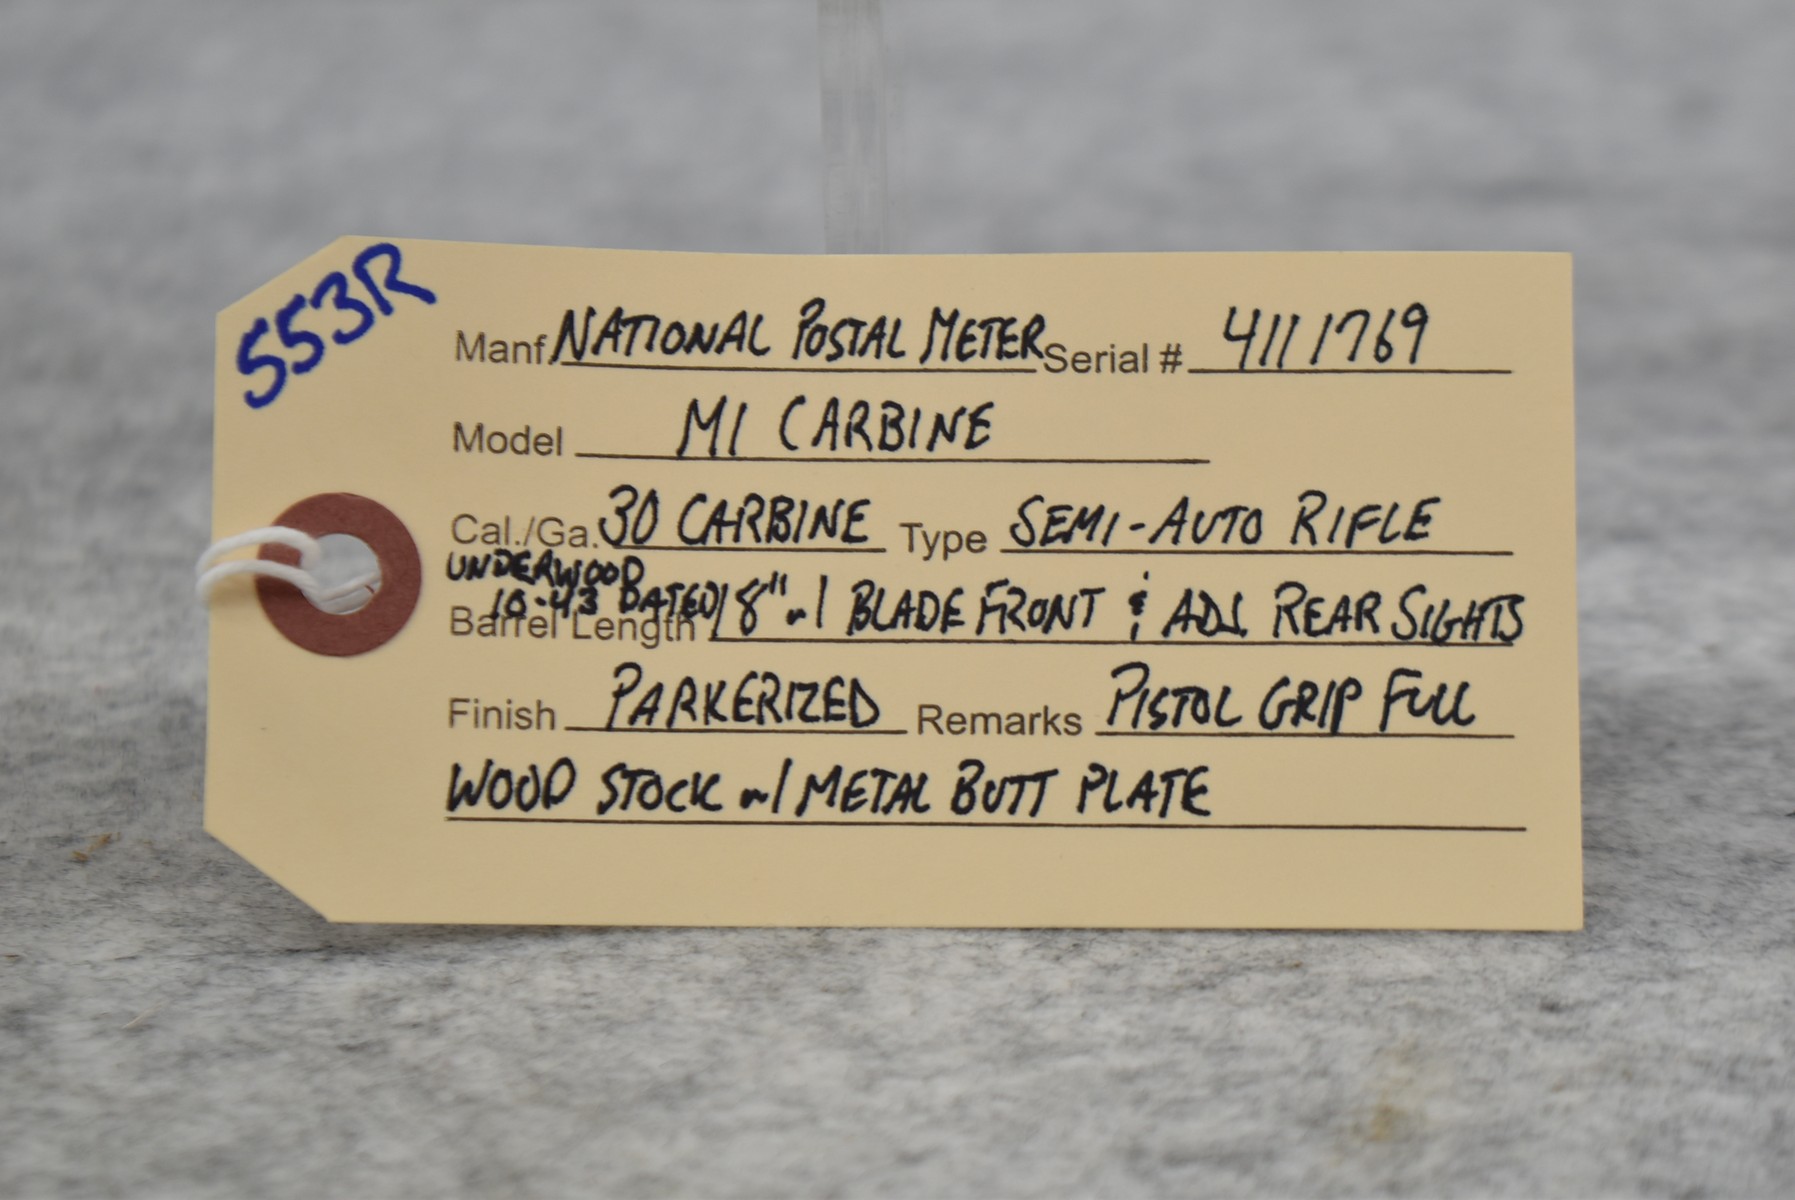 553R
Manf. NATIONAL POSTAL METER Serial # 4111769
Model M1 CARBINE
Cal./Ga. 30 CARBINE Type SEMI-AUTO RIFLE
UNDERWOOD
10-43 DATED
Barrel Length 18" w/ BLADE FRONT & ADJ. REAR SIGHTS
Finish PARKERIZED Remarks PISTOL GRIP FULL
WOOD STOCK w/ METAL BUTT PLATE